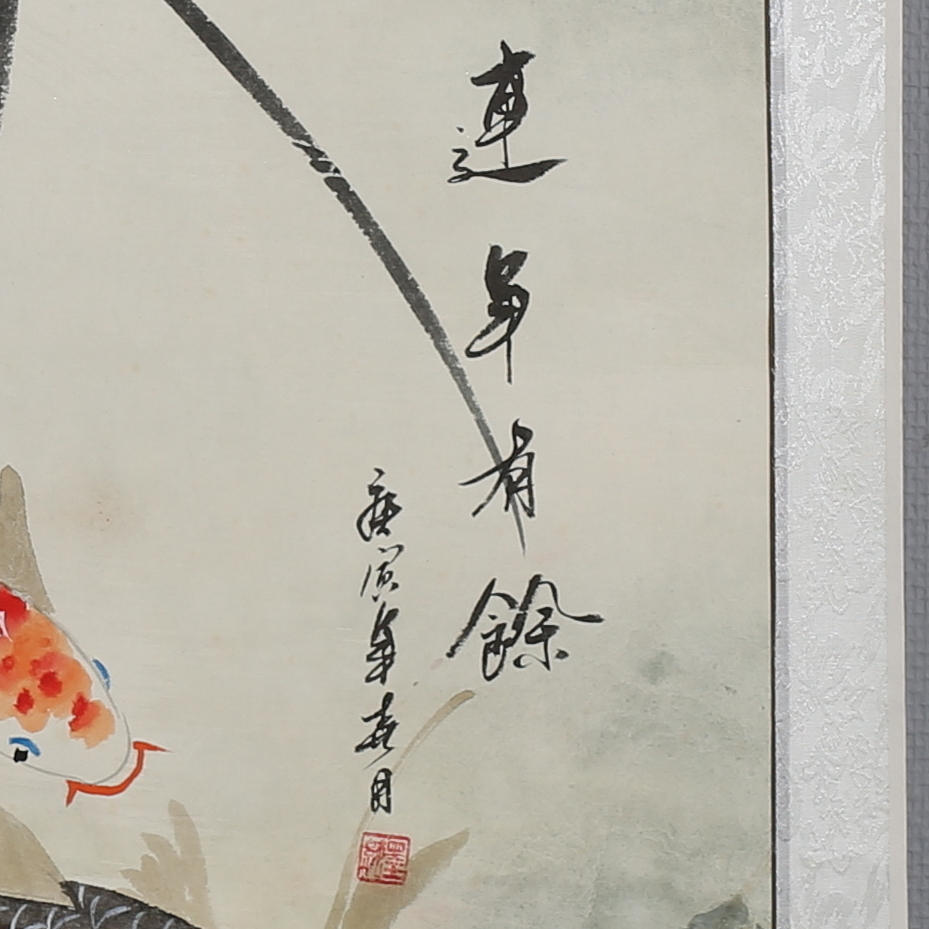 連年有餘
庚寅年春月